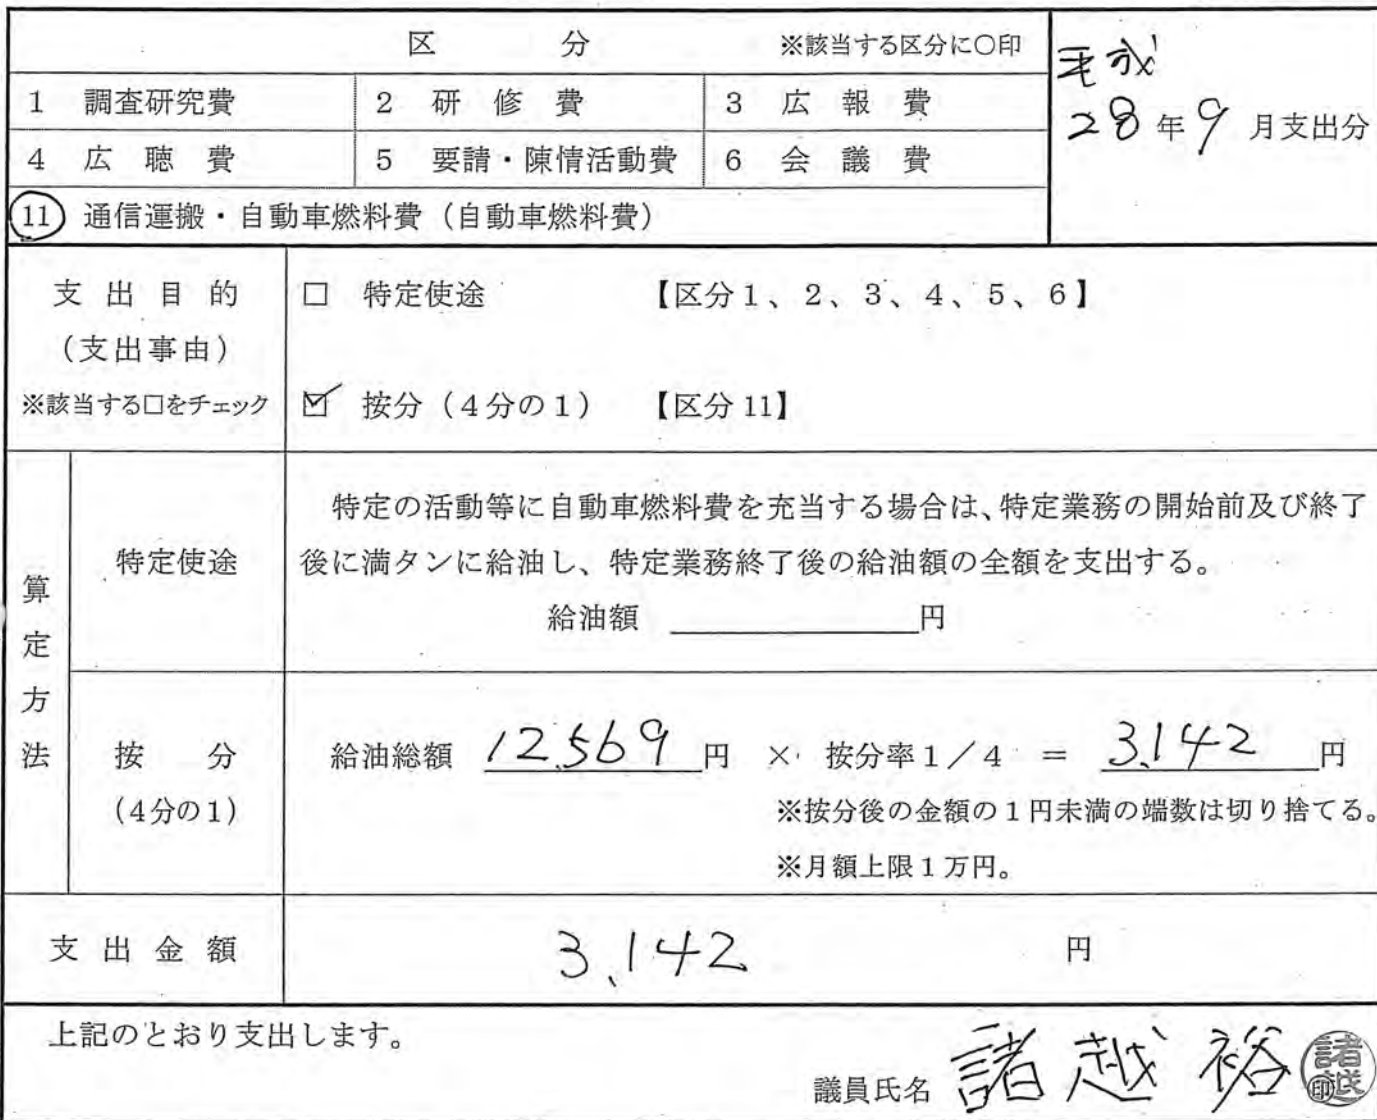 区 分 ※該当する区分に○印
平成
28年9月支出分
1 調査研究費 2 研修費 3 広報費
4 広聴費 5 要請・陳情活動費 6 会議費
11 通信運搬・自動車燃料費（自動車燃料費）
支出目的
（支出事由）
※該当する□をチェック
□ 特定使途 【区分1、2、3、4、5、6】
☑ 按分（4分の1） 【区分11】
算定方法
特定使途
特定の活動等に自動車燃料費を充当する場合は、特定業務の開始前及び終了
後に満タンに給油し、特定業務終了後の給油額の全額を支出する。
給油額 円
按分
（4分の1）
給油総額 12,569 円 × 按分率1／4 ＝ 3,142 円
※按分後の金額の1円未満の端数は切り捨てる。
※月額上限1万円。
支出金額 3,142 円
上記のとおり支出します。
議員氏名 諸越 裕 諸越 印